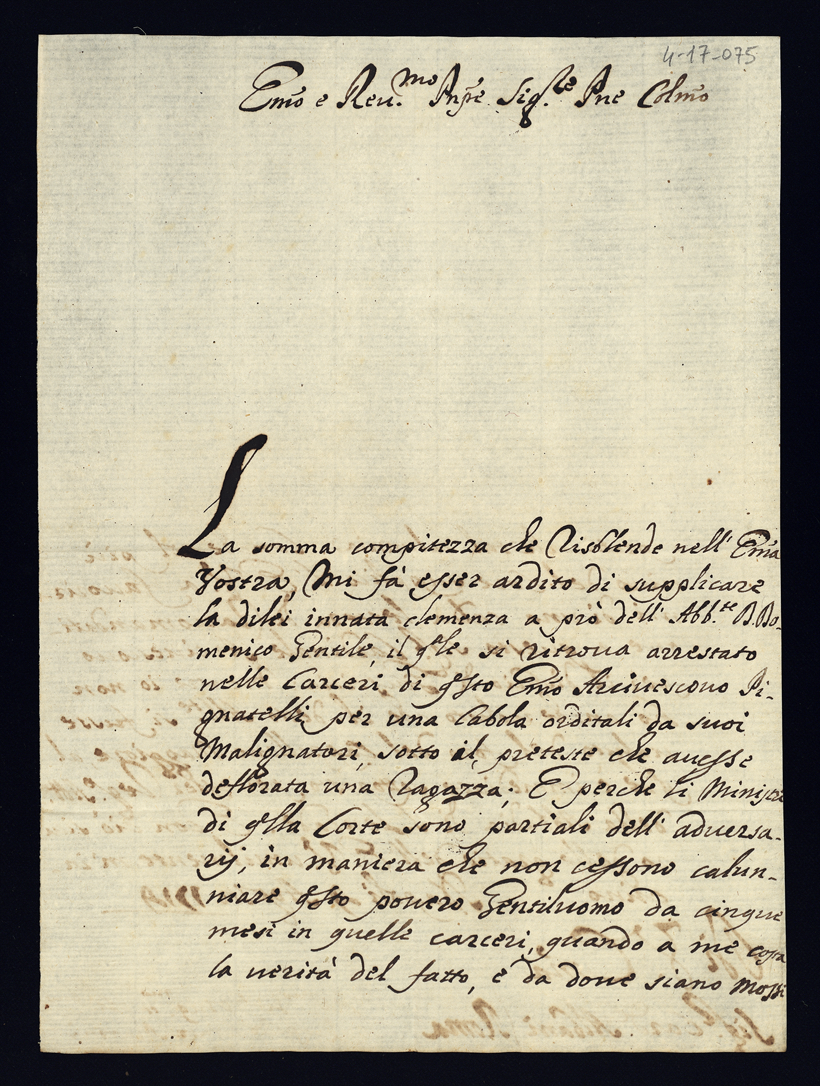 4-17-075
Em̃o e Reu.mo Prnpe Sig.re Pne Colmo
La somma compitezza che Risblende nell' Em̃a
Vostra, Mi fà esser ardito di supplicare
la dilei innata clemenza a prò dell' Abb.te D. Do-
menico Gentile, il q̃le si ritroua arrestato
nelle Carceri di q̃sto Em̃o Arciuescouo Pi-
gnatelli per una Cabola orditali da suoi
Malignatori, sotto il preteste che auesse
deflorata una Ragazza; E perche li Ministri
di q̃lla Corte sono partiali dell' aduersa-
rij, in maniera che non cessono calun-
niare q̃sto pouero Gentiluomo da cinque
mesi in quelle carceri, quando a me costa
la uerità del fatto, e da doue siano mossi